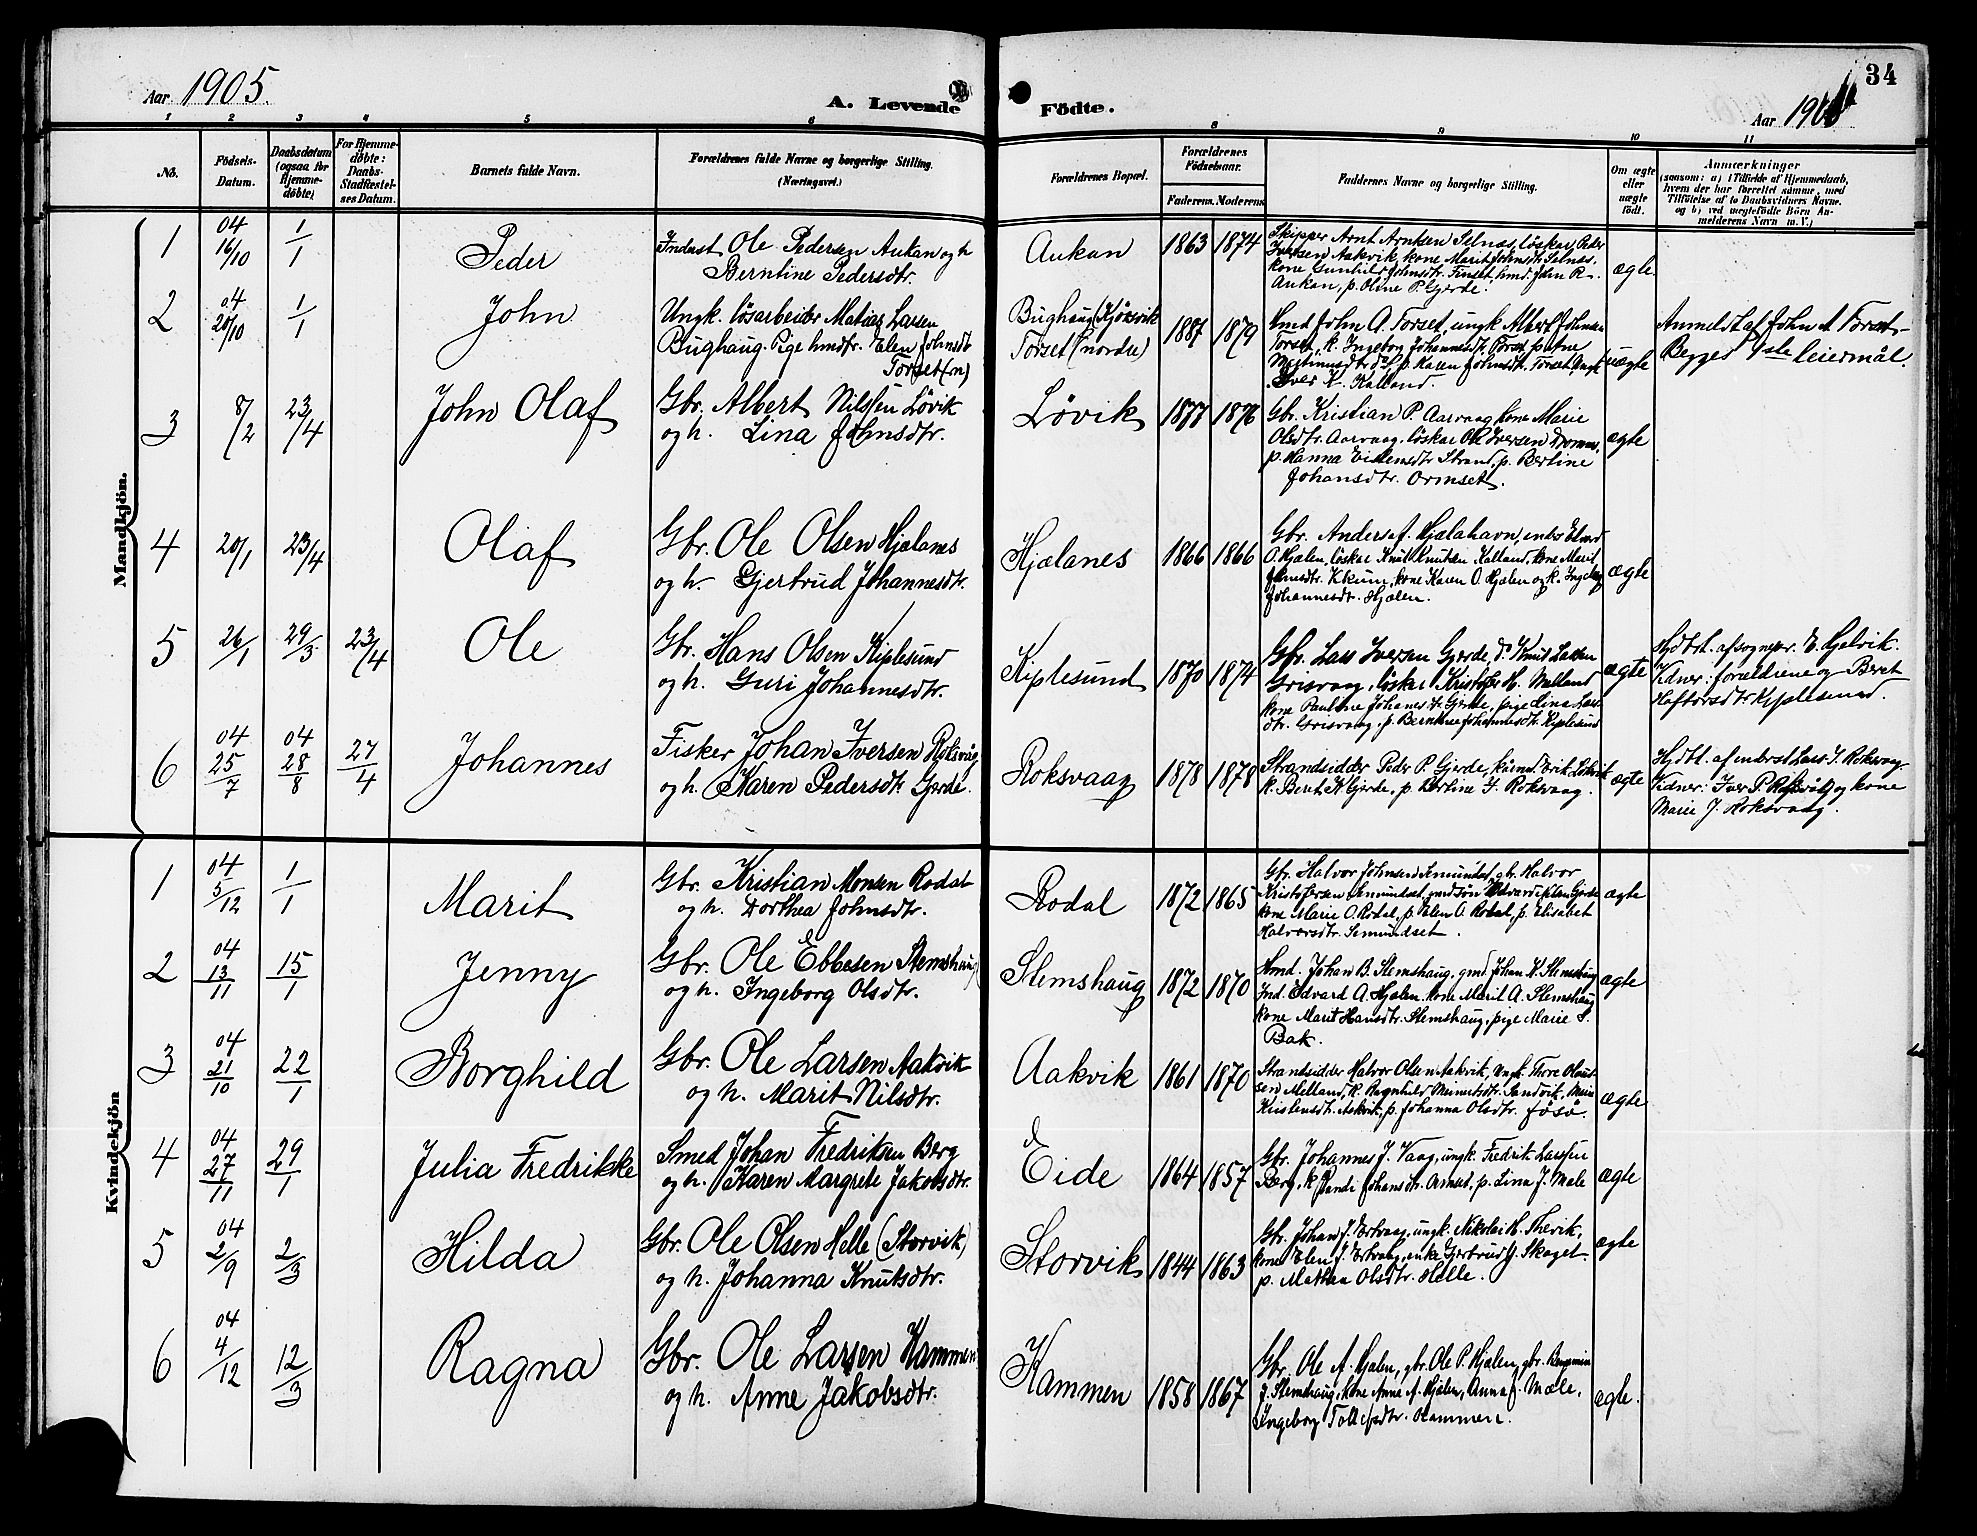 34
Aar 1905.
A. Levende
Födte.
Aar 190
1 2 3 4 5 6 8 9 10 11
No.
Födsels-
Datum.
Daabsdatum
(ogsaa for
Hjemme-
døbte)
For Hjemme-
døbte:
Daabs-
Stadfæstel-
ses Datum.
Barnets fulde Navn.
Forældrenes fulde Navne og borgerlige Stilling.
(Næringsvei.)
Forældrenes Bopæl.
Forældrenes
Födselsaar.
Faderens. Moderens.
Faddernes Navne og borgerlige Stilling.
Om ægte
eller
uægte
födt.
Anmærkninger
(saasom: a) i Tilfælde af Hjemmedaab,
hvem der har forrettet samme, med
Tilföielse af to Daabsvidners Navne.
og b) ved uægtefödte Börn An-
melderens Navn m. V.)
Mandkjön.
1 04 16/10 1/1 Peder
Indust Ole Pedersen Aukan og h
Berntine Pedersdtr.
Aukan 1863 1874
Skipper Arnt Arntsen Selnæs, löskar Peder
Iversen Aakvik, kone Marit Johnsdtr. Selnæs,
kone Gunhild Johnsdtr. Finset, hmd. John R.
Aukan, p. Oline P. Gjerde.
ægte.
2 04 20/10 1/1 John
Ungk. lösarbeider Matias Larsen
Bughaug. Pige hmdfr. Elen Johnsdt
Torset (n)
Bughaug (Kjörsvik
Torset (nordre) 1887 1879
Hmd John A. Torset, ungk Albert Johnsen
Torset, k. Ingeborg Johannesdt. Torset p. Ane
p. Karen Johnsdt. Torset, Ungk
Iver K. Kalland.
uægte
Anmeldt af John A Torset.
Begges 1ste leiermål.
3 8/2 23/4 John Olaf
Gbr. Albert Nilssen Lövik
og h. Lina Johnsdtr.
Lövik 1877 1876
Gbr. Kristian P. Aarvaag kone Marie
Olsdtr. Aarvaag. löskar Ole Iversen
p. Hanna Strand, p. Bertine
Johansdtr. Ormset.
ægte
4 20/1 23/4 Olaf
Gbr. Ole Olsen Hjælanes
og h. Gjertrud Johannesdtr.
Hjælanes 1866 1866
Gbr. Anders J. Hjælahavn, enbs
O. Hjælen, löskar Knut Knutsen Kalland, kone Marit
Johnsdtr. kone Karen O. Hjælen og k. Ingebor
Johannesdt. Hjælen.
ægte
5 26/1 29/3 23/4 Ole
Gbr. Hans Olsen Kiplesund
og h. Guri Johannesdtr.
Kiplesund 1870 1874
Gbr. Lass Iversen Gjerde, do Knut Lassen
Grisvaag, löskar Kristofer H. Melland
kone Pauline Johanesdt. Gjerde, pige Lina Lars
dtr. Grisvaag, p. Berntine Johannesdt. Kiplesund
ægte
Hjdbt. af sognepr. E. Gjelvik.
Vidner: forældrene og Beret
Haftorsdtr. Kyplesund.
6 04 25/7 04 28/8 27/4 Johannes
Fisker Johan Iversen Roksvåg
og h. Karen Pedersdt. Gjerde.
Roksvaag 1878 1878
Strandsidder Peder P. Gjerde, Erik
k. Beret K. Gjerde, p. Bertine J. Roksvaag.
ægte
Hjdbt. af indrst Lars J. Roksvaag.
Vidner: Iver P. Roksvåg og kone
Marie J. Roksvaag.
Kvindekjön
1 04 5/12 1/1 Marit
Gbr. Kristian Monsen Rodal
og h. Dorthea Johnsdtr.
Rodal 1872 1865
Gbr. Halvor Johnsen Semundset, gbr. Halvor
Kristofersen Semundset, Gjerde
kone Marie O. Rodal, p. Elen A. Rodal, p. Elisabet
Halvorsdtr. Semundset.
ægte
2 04 13/11 15/1 Jenny
Gbr. Ole Ebbesen Stemshaug
og h. Ingeborg Olsdtr.
Stemshaug 1872 1870
Hmd. Johan B. Stemshaug, gmd. Johan K. Stemshaug
Ind. Edvard A. Hjælen, kone Marit A. Stemshaug
kone Marit Hansdtr. Stemshaug, pige Marie S.
Bak.
ægte
3 04 21/10 22/1 Borghild
Gbr. Ole Larsen Aakvik
og h. Marit Nilsdtr.
Aakvik 1861 1870
Strandsidder Halvor Olsen Aakvik, Ungk. Thore
sen Melland, k. Ragnhild Sandvik,
Kristensdt. Aakvik, p. Johanna Olsdtr. Fösö.
ægte
4 04 27/11 29/1 Julia Fredrikke
Smed Johan Fredriksen Berg
og h. Karen Margrete Jakobsdtr.
Eide 1864 1857
Gbr. Johannes J. Vaag, ungk. Fredrik Larssen
Berg, k Randi Johansdtr. p. Lina J. Mæle
ægte
5 04 2/9 2/3 Hilda
Gbr. Ole Olsen Helle (Storvik)
og h. Johanna Knutsdtr.
Storvik 1844 1863
Gbr. Johan J. Ertvaag, ungk. Nikolai H. Thevik,
kone Elen J. Ertvaag, enke Gjertrud J. Skaget
p. Mathea Olsdtr. Helle.
ægte
6 04 4/12 12/3 Ragna
Gbr. Ole Larsen Hammen
og h. Anne Jakobsdtr.
Hammen 1858 1867
Gbr. Ole A. Hjælen, gbr. Ole P. Hjælen, gbr. Benjamin
J. Stemshaug, kone Anne A. Hjælen, Anna J. Mæle,
Ingeborg Tollefsdtr. Hammen.
ægte.